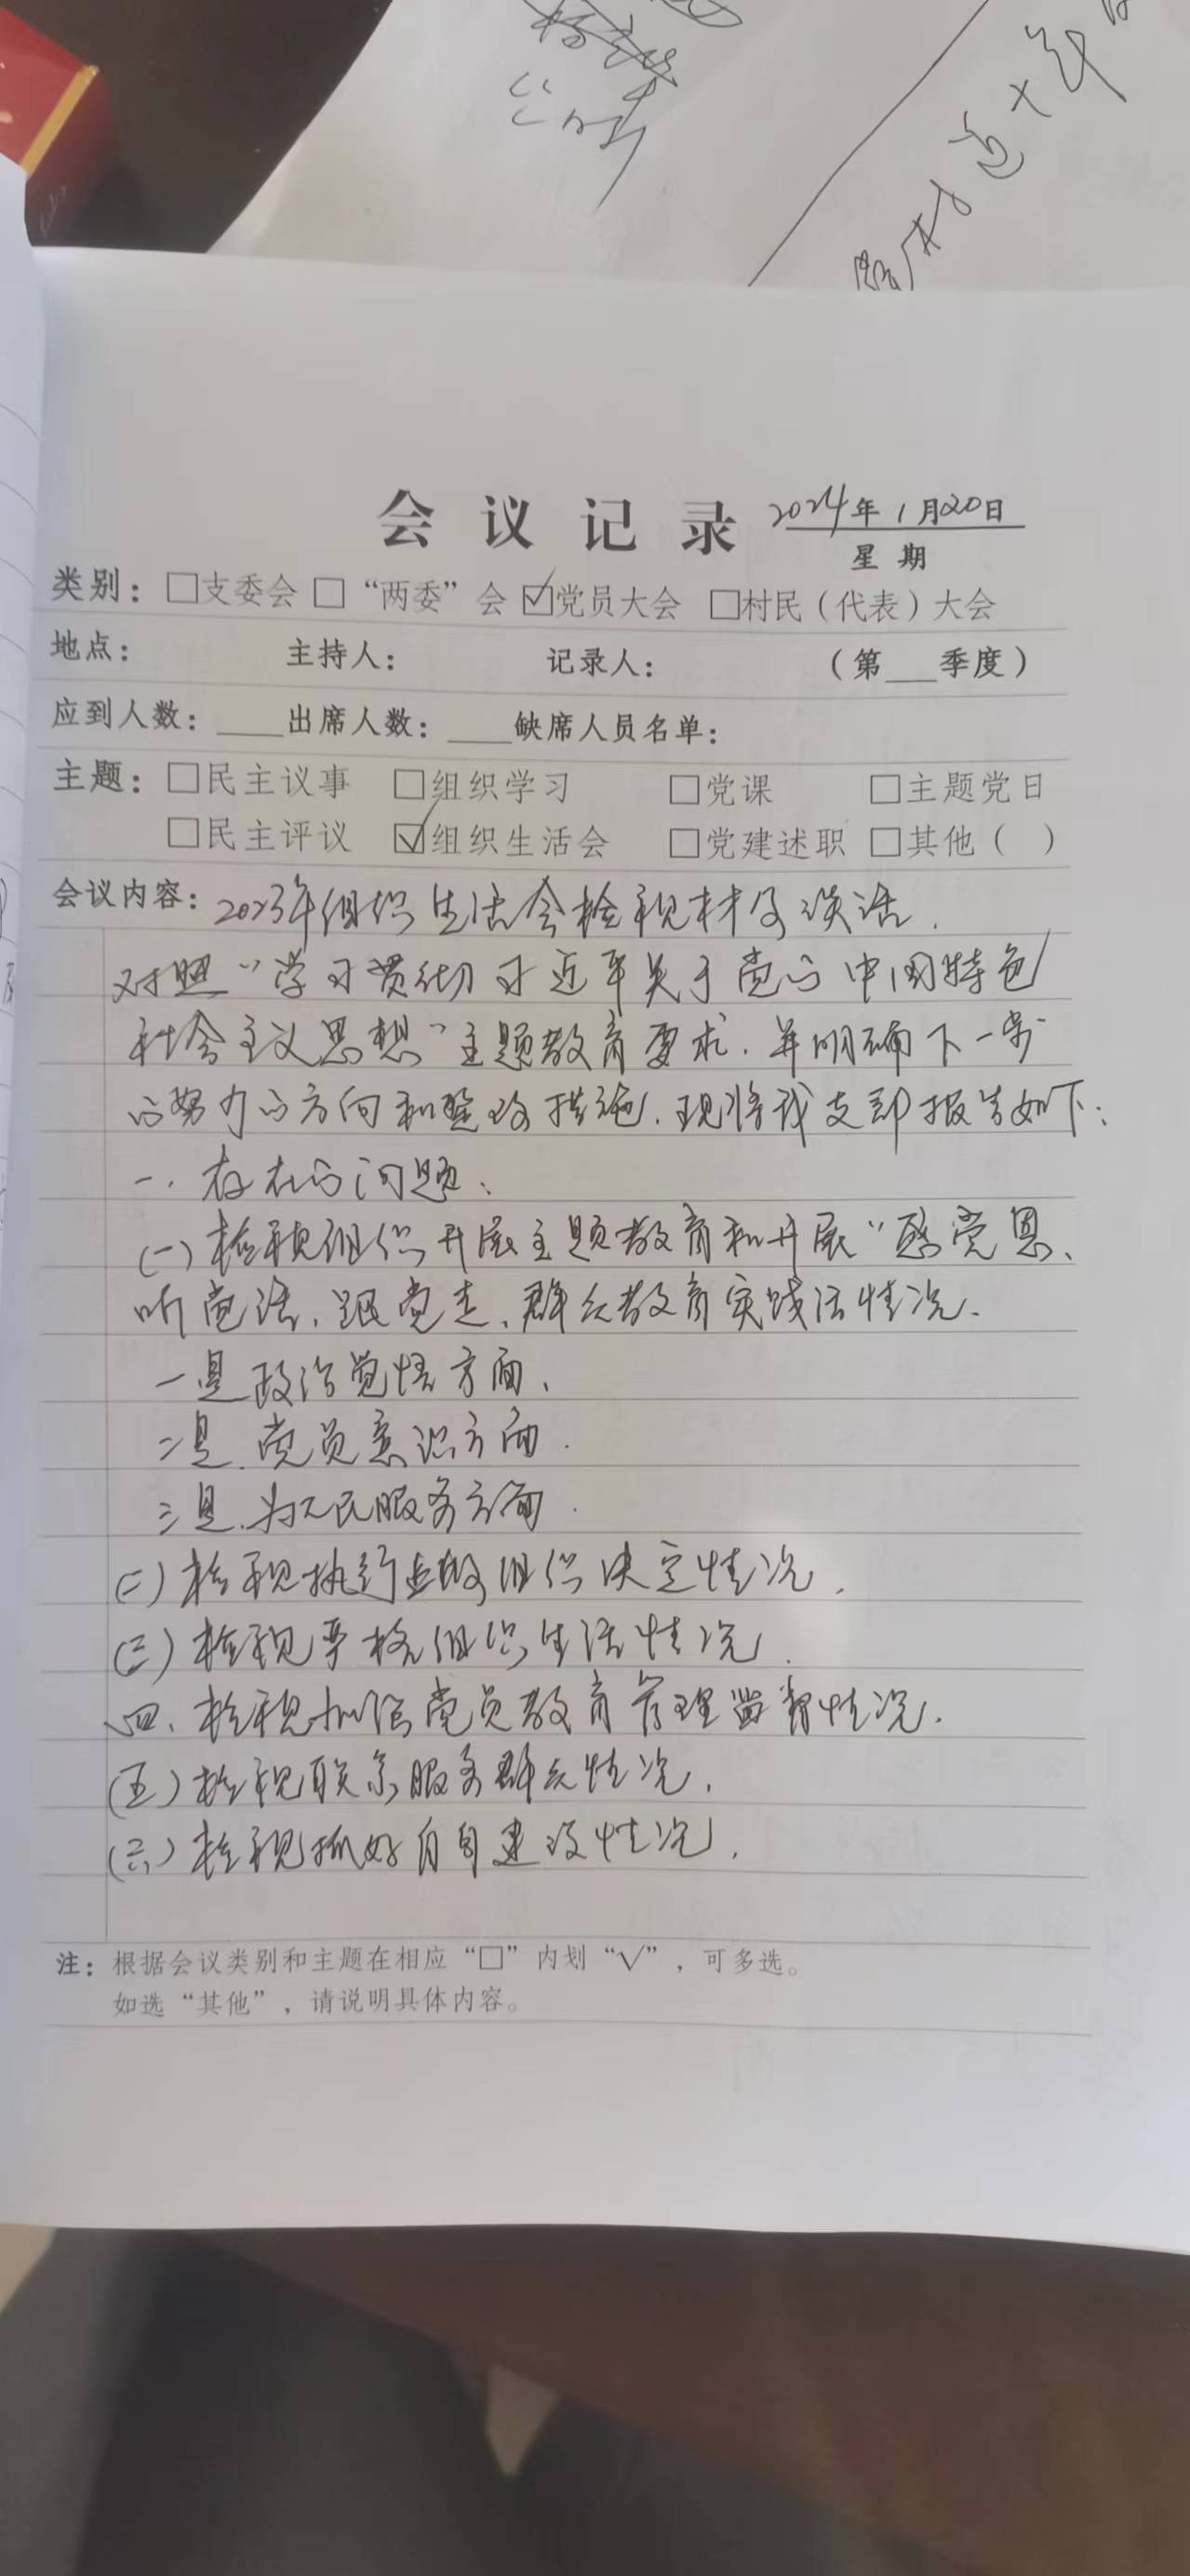 会议记录 2024年1月20日
星期
类别：□支委会 □“两委”会 ☑党员大会 □村民（代表）大会
地点： 主持人： 记录人： （第___季度）
应到人数：____出席人数：____缺席人员名单：
主题：□民主议事 □组织学习 □党课 □主题党日
□民主评议 ☑组织生活会 □党建述职 □其他（ ）
会议内容：2023年组织生活会检视材及谈话.
对照“学习贯彻 近平关于党的中国特色
社会主义思想”主题教育要求.并明确下一步
的努力的方向和整改措施.现将我支部报告如下：
一.存在的问题、
(一)检视组织开展主题教育和开展“感党恩、
听党话.跟党走、群众教育实践活情况.
一是政治觉悟方面、
二是.党员意识方面.
三是.为人民服务方面.
(二)检视执行上级组织决定情况.
(三)检视严格组织生活情况.
四、检视加强党员教育管理监督情况.
(五)检视联系服务群众情况.
(六)检视抓好自身建设情况.
注：根据会议类别和主题在相应“□”内划“√”，可多选。
如选“其他”，请说明具体内容。